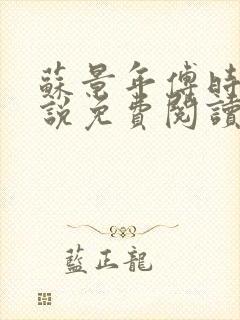 蘇景年傅時
說免費閱讀
藍正龍